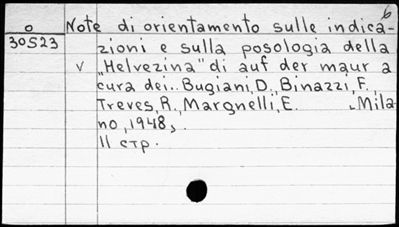 6
o Note di orientamento sulle indica-
30523 zioni e sulla posologia della
v „Helvezina" di auf der maur a
cura dei.. Bugiani, D., Binazzi, F.,
Treves, R., Margnelli, E. „Mila
no, 1948,.
11 стр.